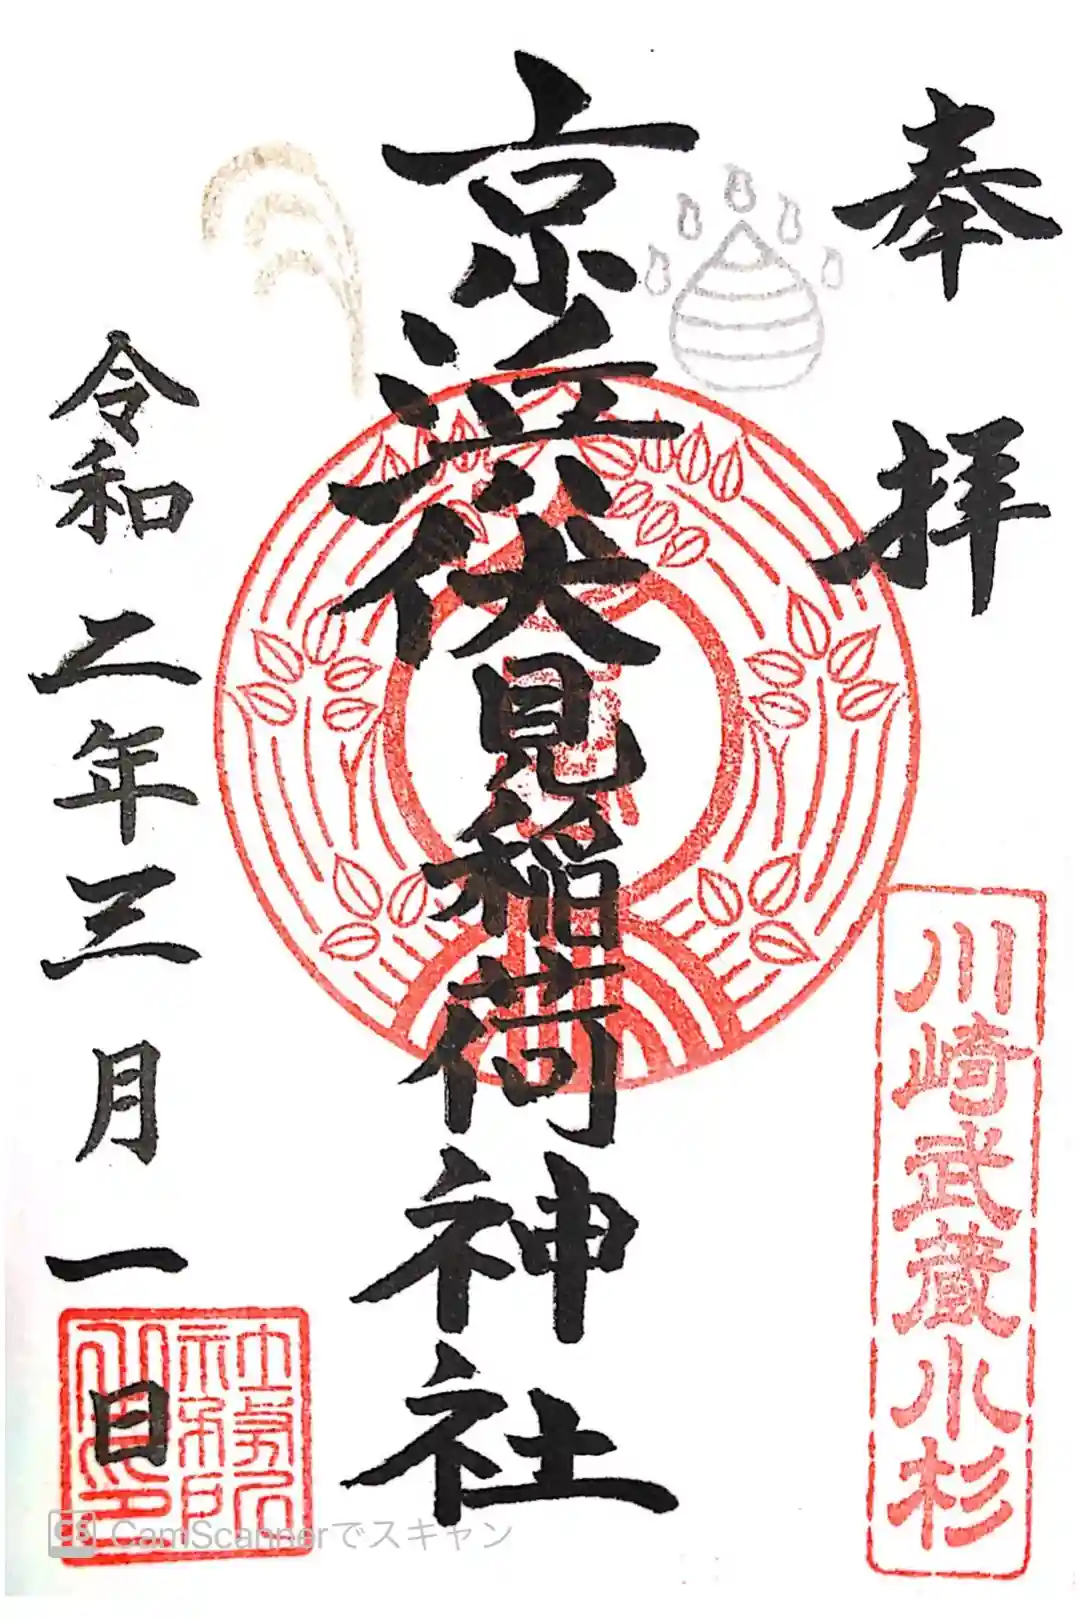 奉拝
川崎武蔵小杉
京浜伏見稲荷神社
令和二年三月一日
社務所
CS CamScannerでスキャン